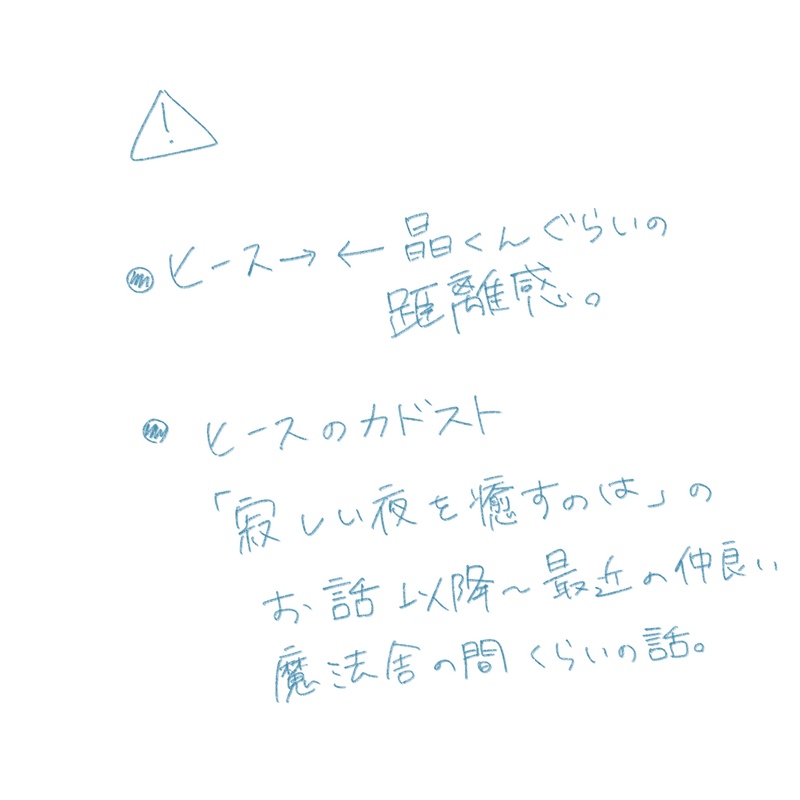 ⚠
● ヒース→ ← 晶くんぐらいの
距離感。
● ヒースのカドスト
「寂しい夜を癒すのは」の
お話以降～最近の仲良い
魔法舎の間くらいの話。